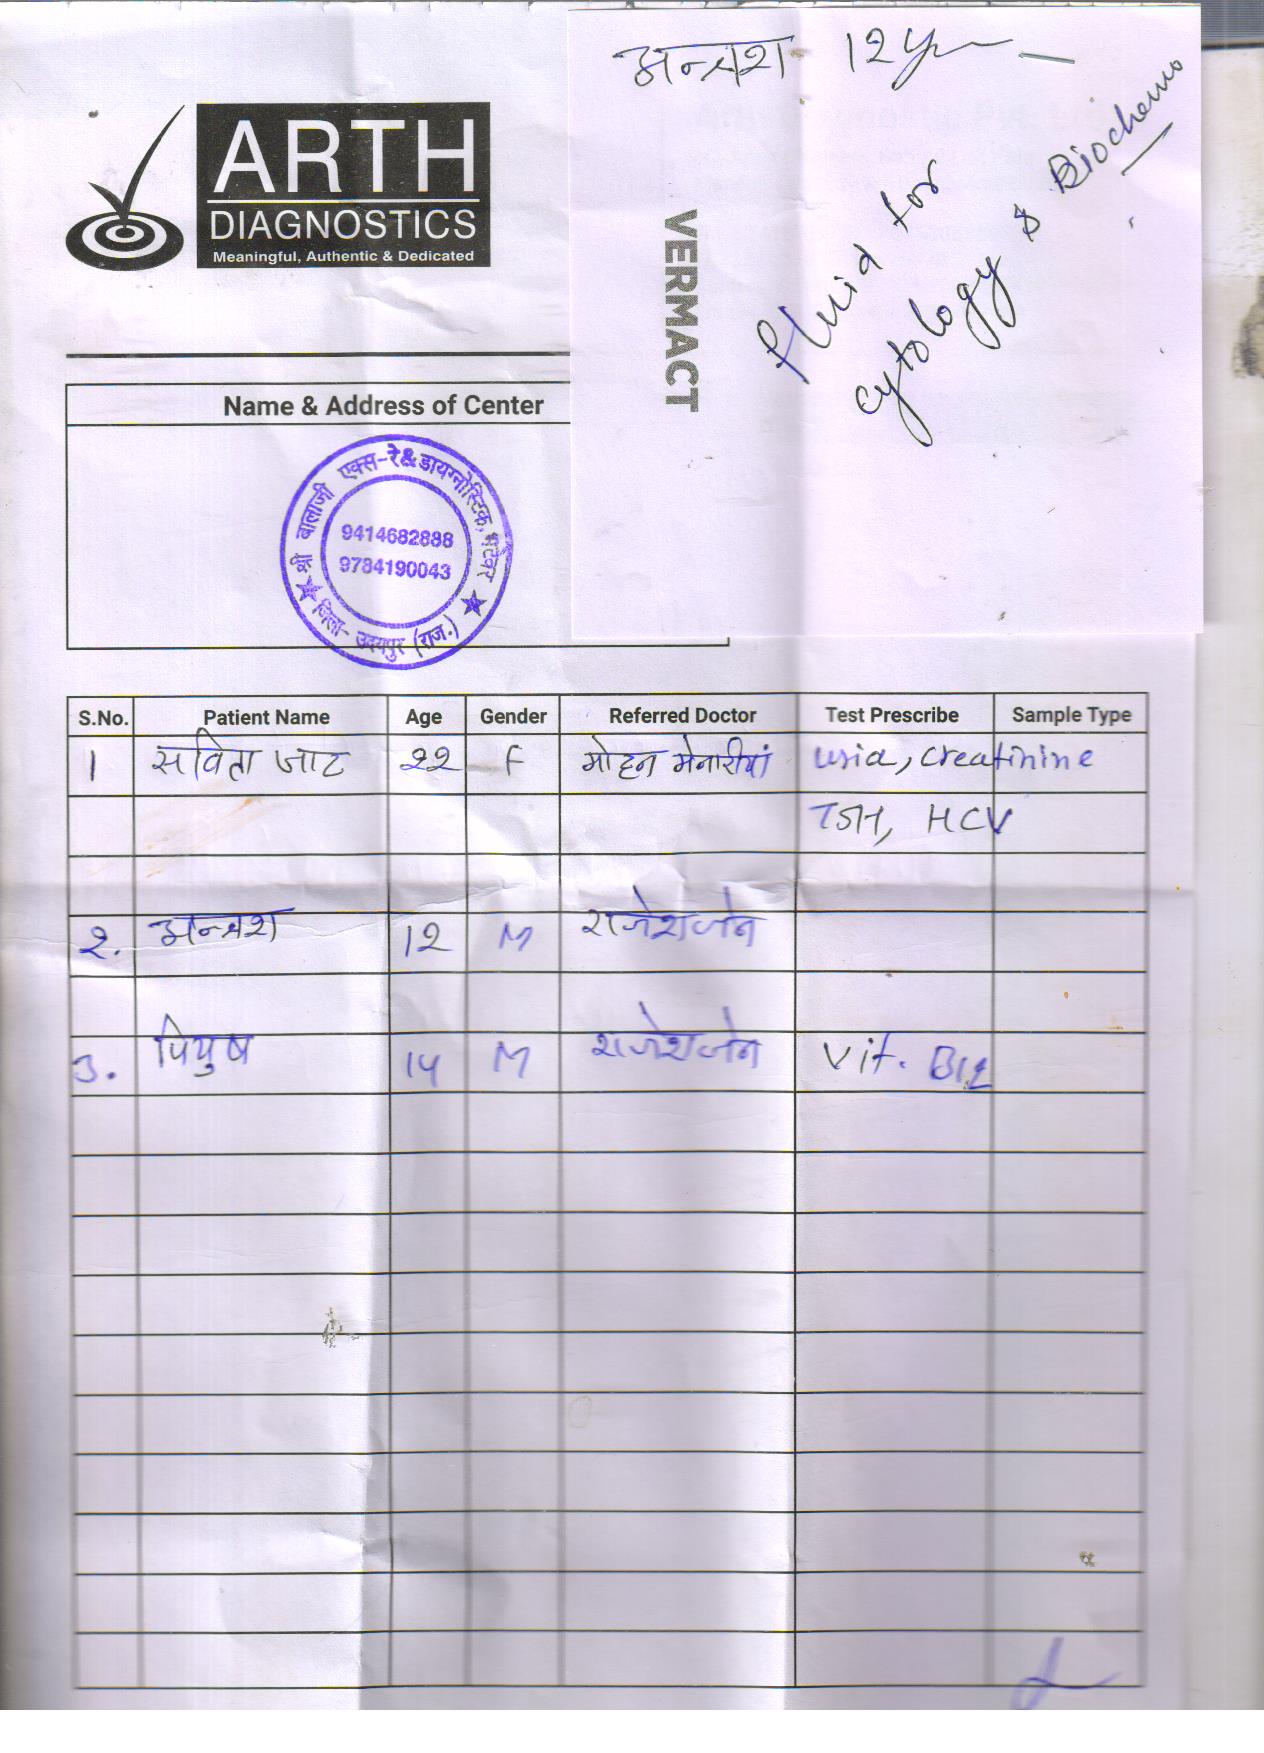 ARTH
DIAGNOSTICS
Meaningful, Authentic & Dedicated
अन्वश 12 yr
Fluid for
cytology & Biochemo
VERMACT
Name & Address of Center
श्री बालाजी एक्स-रे & डायग्नोस्टिक, भटेवर
9414682888
9784190043
जिला- उदयपुर (राज.)
S.No. Patient Name Age Gender Referred Doctor Test Prescribe Sample Type
1 सविता जाट 22 F मोहन मेनारीयां uria, creatinine
TSH, HCV
2. अन्वश 12 M राजेश जैन
3. पियुष 14 M राजेश जैन Vit. B12